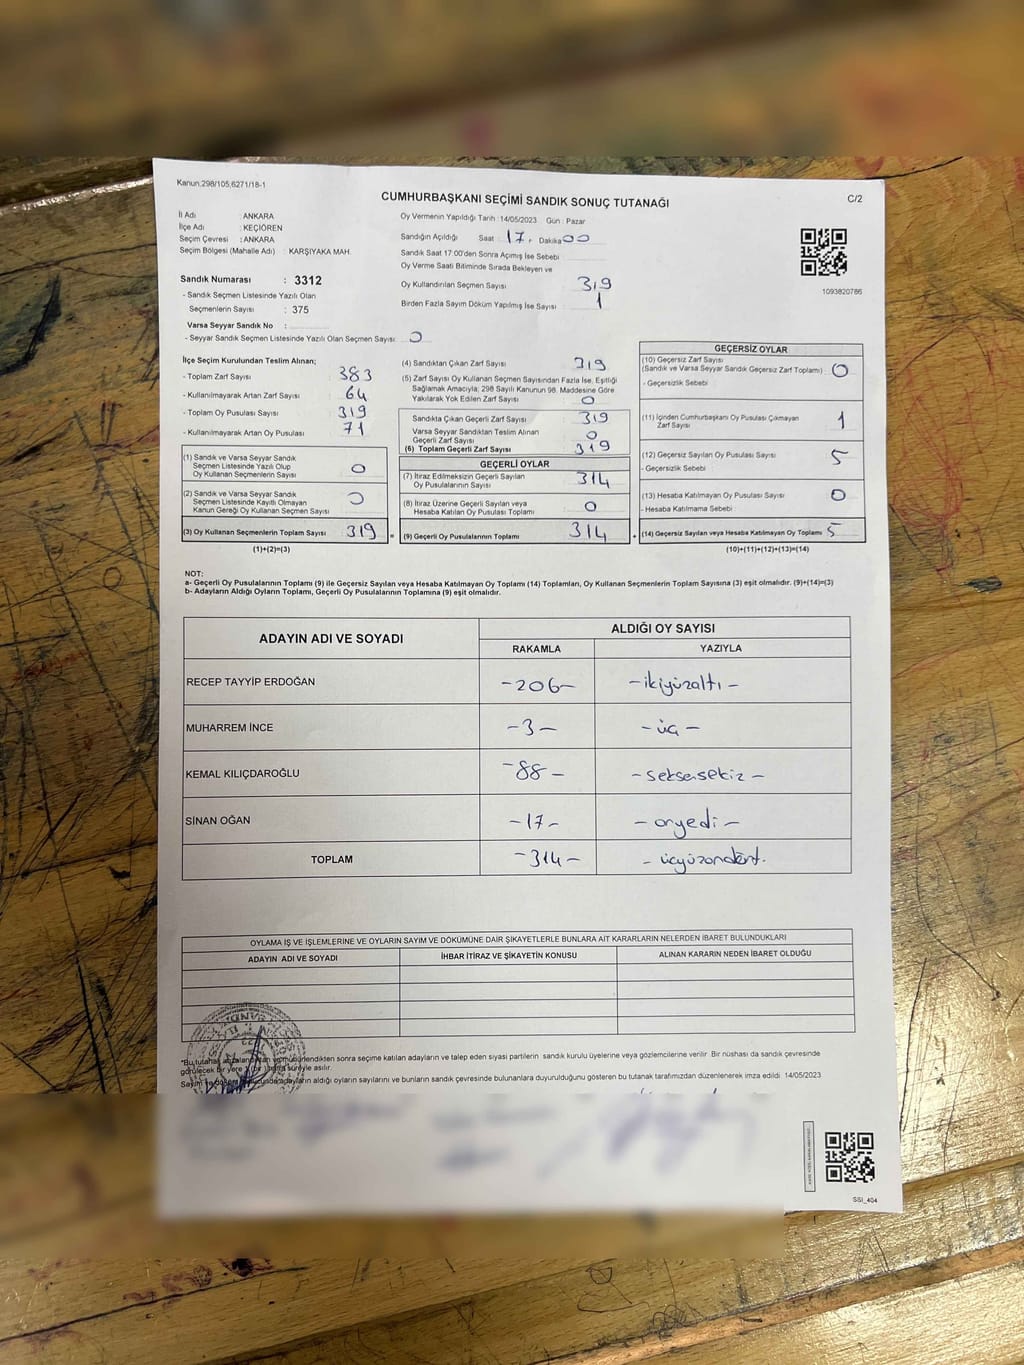 Kanun:298/105,6271/18-1
CUMHURBAŞKANI SEÇİMİ SANDIK SONUÇ TUTANAĞI
C/2
İl Adı : ANKARA
İlçe Adı : KEÇİÖREN
Seçim Çevresi : ANKARA
Seçim Bölgesi (Mahalle Adı) : KARŞIYAKA MAH.
Oy Vermenin Yapıldığı Tarih :14/05/2023 Gün : Pazar
Sandığın Açıldığı Saat : 17. Dakika 00
Sandık Saat 17:00'den Sonra Açımış İse Sebebi
Oy Verme Saati Bitiminde Sırada Bekleyen ve
Oy Kullandırılan Seçmen Sayısı 319
Birden Fazla Sayım Döküm Yapılmış İse Sayısı 1
1093820786
Sandık Numarası : 3312
- Sandık Seçmen Listesinde Yazılı Olan
Seçmenlerin Sayısı : 375
Varsa Seyyar Sandık No :
- Seyyar Sandık Seçmen Listesinde Yazılı Olan Seçmen Sayısı 0
İlçe Seçim Kurulundan Teslim Alınan;
- Toplam Zarf Sayısı 383
- Kullanılmayarak Artan Zarf Sayısı 64
- Toplam Oy Pusulası Sayısı 319
- Kullanılmayarak Artan Oy Pusulası 71
(1) Sandık ve Varsa Seyyar Sandık
Seçmen Listesinde Yazılı Olup
Oy Kullanan Seçmenlerin Sayısı 0
(2) Sandık ve Varsa Seyyar Sandık
Seçmen Listesinde Kayıtlı Olmayan
Kanun Gereği Oy Kullanan Seçmen Sayısı 0
(3) Oy Kullanan Seçmenlerin Toplam Sayısı 319 =
(1)+(2)=(3)
(4) Sandıktan Çıkan Zarf Sayısı 319
(5) Zarf Sayısı Oy Kullanan Seçmen Sayısından Fazla İse, Eşitliği
Sağlamak Amacıyla; 298 Sayılı Kanunun 98. Maddesine Göre
Yakılarak Yok Edilen Zarf Sayısı 0
Sandıkta Çıkan Geçerli Zarf Sayısı 319
Varsa Seyyar Sandıktan Teslim Alınan
Geçerli Zarf Sayısı 0
(6) Toplam Geçerli Zarf Sayısı 319
GEÇERLİ OYLAR
(7) İtiraz Edilmeksizin Geçerli Sayılan
Oy Pusulalarının Sayısı 314
(8) İtiraz Üzerine Geçerli Sayılan veya
Hesaba Katılan Oy Pusulası Toplamı 0
(9) Geçerli Oy Pusulalarının Toplamı 314 +
GEÇERSİZ OYLAR
(10) Geçersiz Zarf Sayısı
(Sandık ve Varsa Seyyar Sandık Geçersiz Zarf Toplamı) 0
- Geçersizlik Sebebi
(11) İçinden Cumhurbaşkanı Oy Pusulası Çıkmayan
Zarf Sayısı 1
(12) Geçersiz Sayılan Oy Pusulası Sayısı 5
- Geçersizlik Sebebi
(13) Hesaba Katılmayan Oy Pusulası Sayısı 0
- Hesaba Katılmama Sebebi
(14) Geçersiz Sayılan veya Hesaba Katılmayan Oy Toplamı 5
(10)+(11)+(12)+(13)=(14)
NOT:
a- Geçerli Oy Pusulalarının Toplamı (9) ile Geçersiz Sayılan veya Hesaba Katılmayan Oy Toplamı (14) Toplamları, Oy Kullanan Seçmenlerin Toplam Sayısına (3) eşit olmalıdır. (9)+(14)=(3)
b- Adayların Aldığı Oyların Toplamı, Geçerli Oy Pusulalarının Toplamına (9) eşit olmalıdır.
ADAYIN ADI VE SOYADI ALDIĞI OY SAYISI
RAKAMLA YAZIYLA
RECEP TAYYİP ERDOĞAN -206- -ikiyüzaltı-
MUHARREM İNCE -3- -üç-
KEMAL KILIÇDAROĞLU -88- -seksensekiz-
SİNAN OĞAN -17- -onyedi-
TOPLAM -314- -üçyüzondört.
OYLAMA İŞ VE İŞLEMLERİNE VE OYLARIN SAYIM VE DÖKÜMÜNE DAİR ŞİKAYETLERLE BUNLARA AİT KARARLARIN NELERDEN İBARET BULUNDUKLARI
ADAYIN ADI VE SOYADI İHBAR İTİRAZ VE ŞİKAYETİN KONUSU ALINAN KARARIN NEDEN İBARET OLDUĞU
*Bu tutanak sonra seçime katılan adayların ve talep eden siyasi partilerin sandık kurulu üyelerine veya gözlemcilerine verilir. Bir nüshası da sandık çevresinde
görülecek bir yere süreyle asılır.
Sayım adayların aldığı oyların sayılarını ve bunların sandık çevresinde bulunanlara duyurulduğunu gösteren bu tutanak tarafımızdan düzenlenerek imza edildi. 14/05/2023
SSİ_404